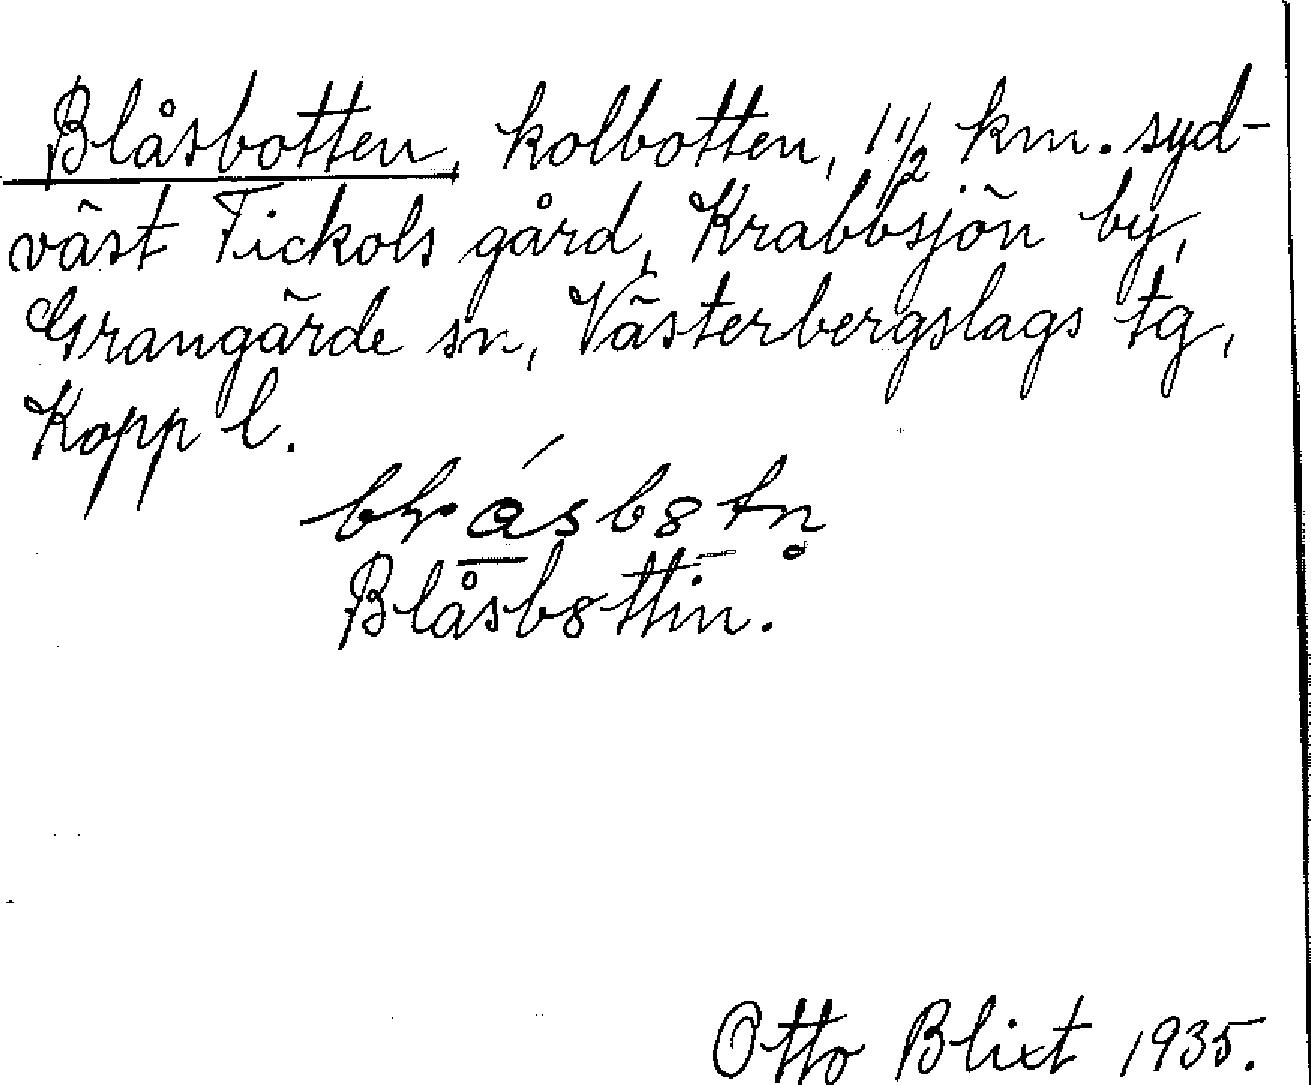 Blåsbotten, kolbotten, 1 1/2 km. syd-
väst Fickols gård, Krabbsjön by,
Grangärde sn, Västerbergslags tg,
Kopp l.
Blåsb8ttin.
Otto Blixt 1935.